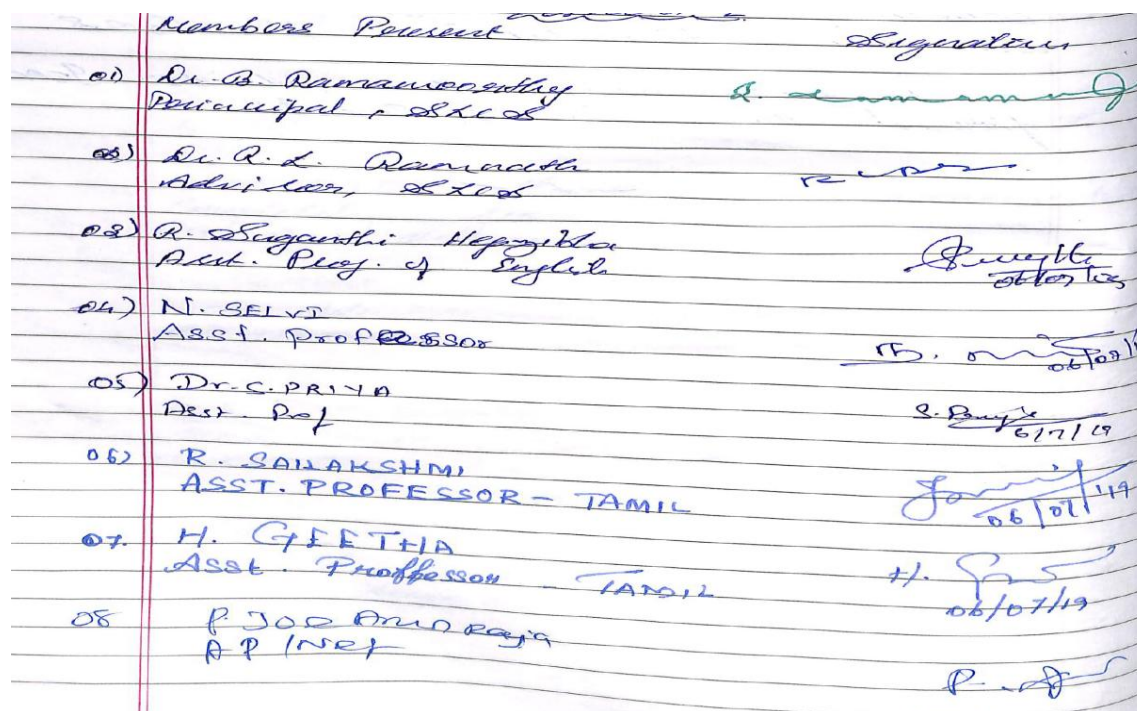 Members Present Signature
01) Dr. B. Ramamoorthy
Principal, SKCS
02) Dr. R. L. Ramnath
Advisor, SKCS
03) R. Suganthi Hepzibha
Asst. Prof. of English
06/07/19
04) N. SELVI
Asst. Professor
06/07/1
05) Dr. C. PRIYA
Asst. Prof
S. Priya
6/7/19
06) R. SAILAKSHMI
ASST. PROFESSOR - TAMIL
06/07/'19
07. H. GEETHA
Asst. Proffessor - TAMIL
H.
06/07/19
08 P. JOE Arun Raja
AP
P.